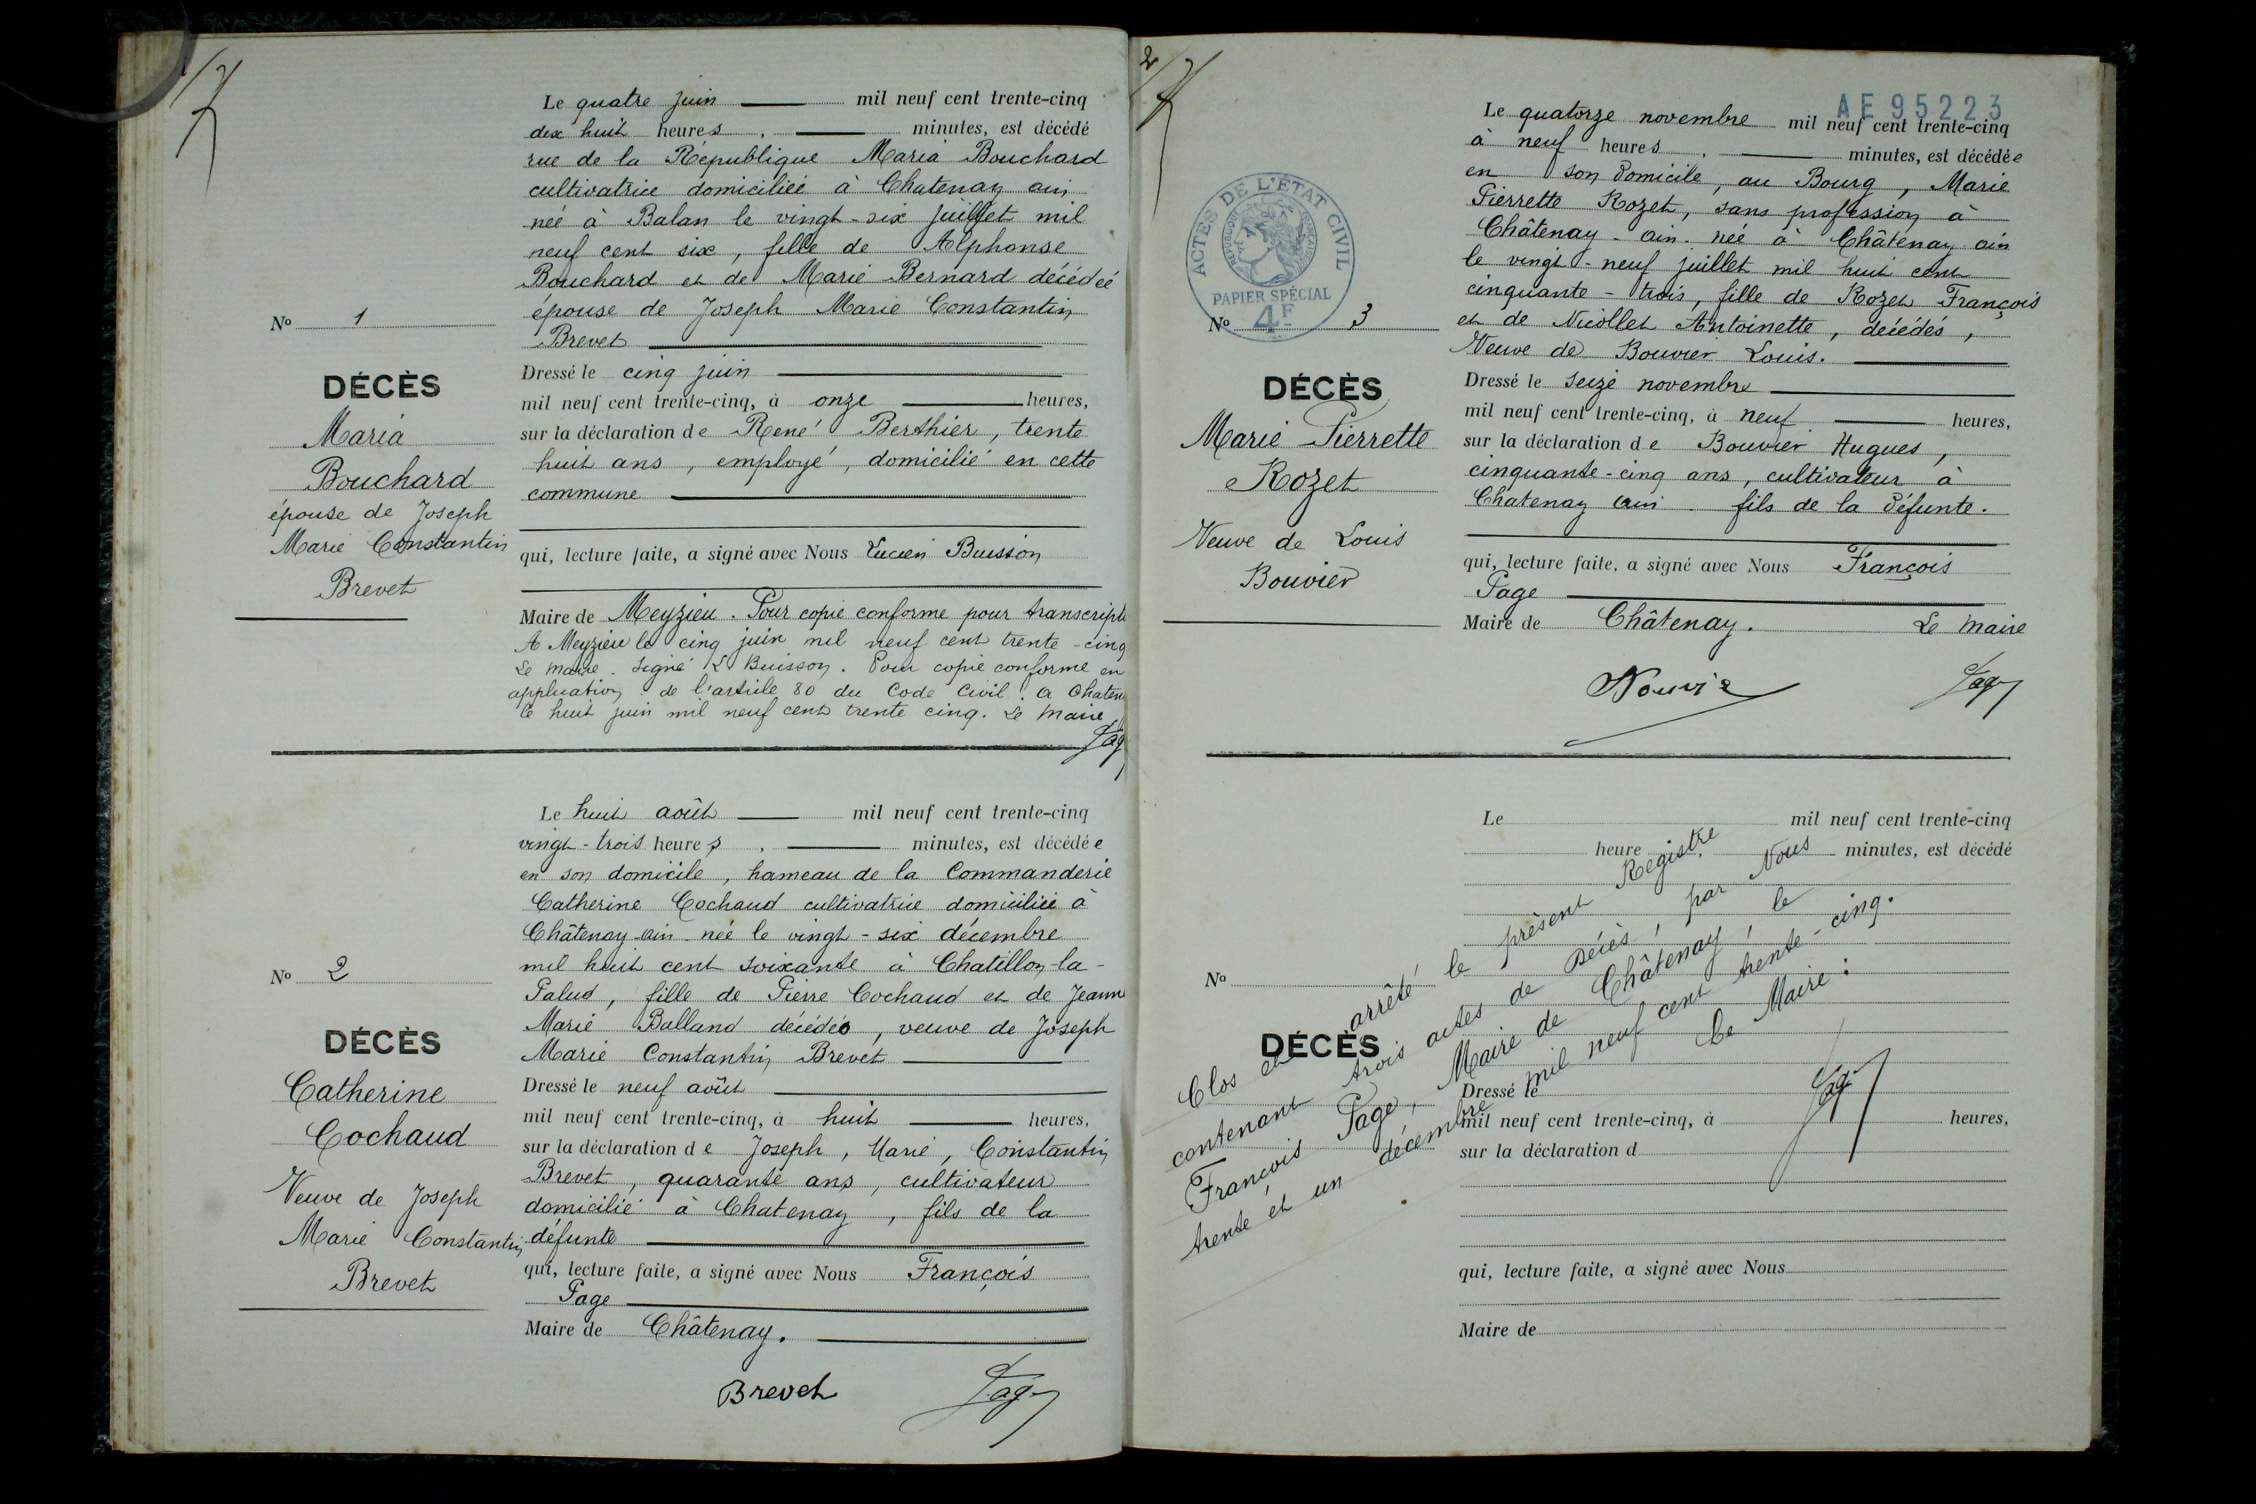 1/
Le quatre juin mil neuf cent trente-cinq
dix huit heures, minutes, est décédé
rue de la République Maria Bouchard
cultivatrice domiciliée à Chatenay ain
née à Balan le vingt-six juillet mil
neuf cent six, fille de Alphonse
Bouchard et de Marie Bernard décédée
épouse de Joseph Marie Constantin
Brevet
No 1
DÉCÈS
Maria
Bouchard
épouse de Joseph
Marie Constantin
Brevet
Dressé le cinq juin
mil neuf cent trente-cinq, à onze heures,
sur la déclaration de René Berthier, trente
huit ans, employé, domicilié en cette
commune
qui, lecture faite, a signé avec Nous Lucien Buisson
Maire de Meyzieu. Pour copie conforme pour transcripti
A Meyzieu le cinq juin mil neuf cent trente-cinq
Le maire. signé L Buisson. Pour copie conforme en
application de l'article 80 du Code Civil. A Chaten
le huit juin mil neuf cent trente cinq. Le Maire
Page
Le huit août mil neuf cent trente-cinq
vingt-trois heures, minutes, est décédée
en son domicile, hameau de la Commanderie
Catherine Cochaud cultivatrice domiciliée à
Châtenay ain née le vingt-six décembre
mil huit cent soixante à Chatillon-la-
Palud, fille de Pierre Cochaud et de Jeanne
Marie Balland décédés, veuve de Joseph
Marie Constantin Brevet
No 2
DÉCÈS
Catherine
Cochaud
Veuve de Joseph
Marie Constantin
Brevet
Dressé le neuf août
mil neuf cent trente-cinq, à huit heures,
sur la déclaration de Joseph, Marie, Constantin
Brevet, quarante ans, cultivateur
domicilié à Chatenay, fils de la
défunte
qui, lecture faite, a signé avec Nous François
Page
Maire de Châtenay.
Brevet Page
2/
AE 95223
Le quatorze novembre mil neuf cent trente-cinq
à neuf heures, minutes, est décédée
en son domicile, au Bourg, Marie
Pierrette Rozet, sans profession à
Châtenay-ain. née à Châtenay ain
le vingt-neuf juillet mil huit cent
cinquante-trois, fille de Rozet François
et de Nicollet Antoinette, décédés,
Veuve de Bouvier Louis.
ACTES DE L'ÉTAT CIVIL
RÉPUBLIQUE FRANÇAISE
PAPIER SPÉCIAL
4F
No 3
DÉCÈS
Marie Pierrette
Rozet
Veuve de Louis
Bouvier
Dressé le seize novembre
mil neuf cent trente-cinq, à neuf heures,
sur la déclaration de Bouvier Hugues,
cinquante-cinq ans, cultivateur à
Chatenay ain. fils de la défunte.
qui, lecture faite, a signé avec Nous François
Page
Maire de Châtenay. Le Maire
Bouvier Page
Le mil neuf cent trente-cinq
heure, minutes, est décédé
No
DÉCÈS
Dressé le
mil neuf cent trente-cinq, à heures,
sur la déclaration d
qui, lecture faite, a signé avec Nous
Maire de
Clos et arrêté le présent Registre
contenant trois actes de Décès, par Nous
François Page, Maire de Châtenay, le
trente et un décembre mil neuf cent trente-cinq.
Le Maire :
Page